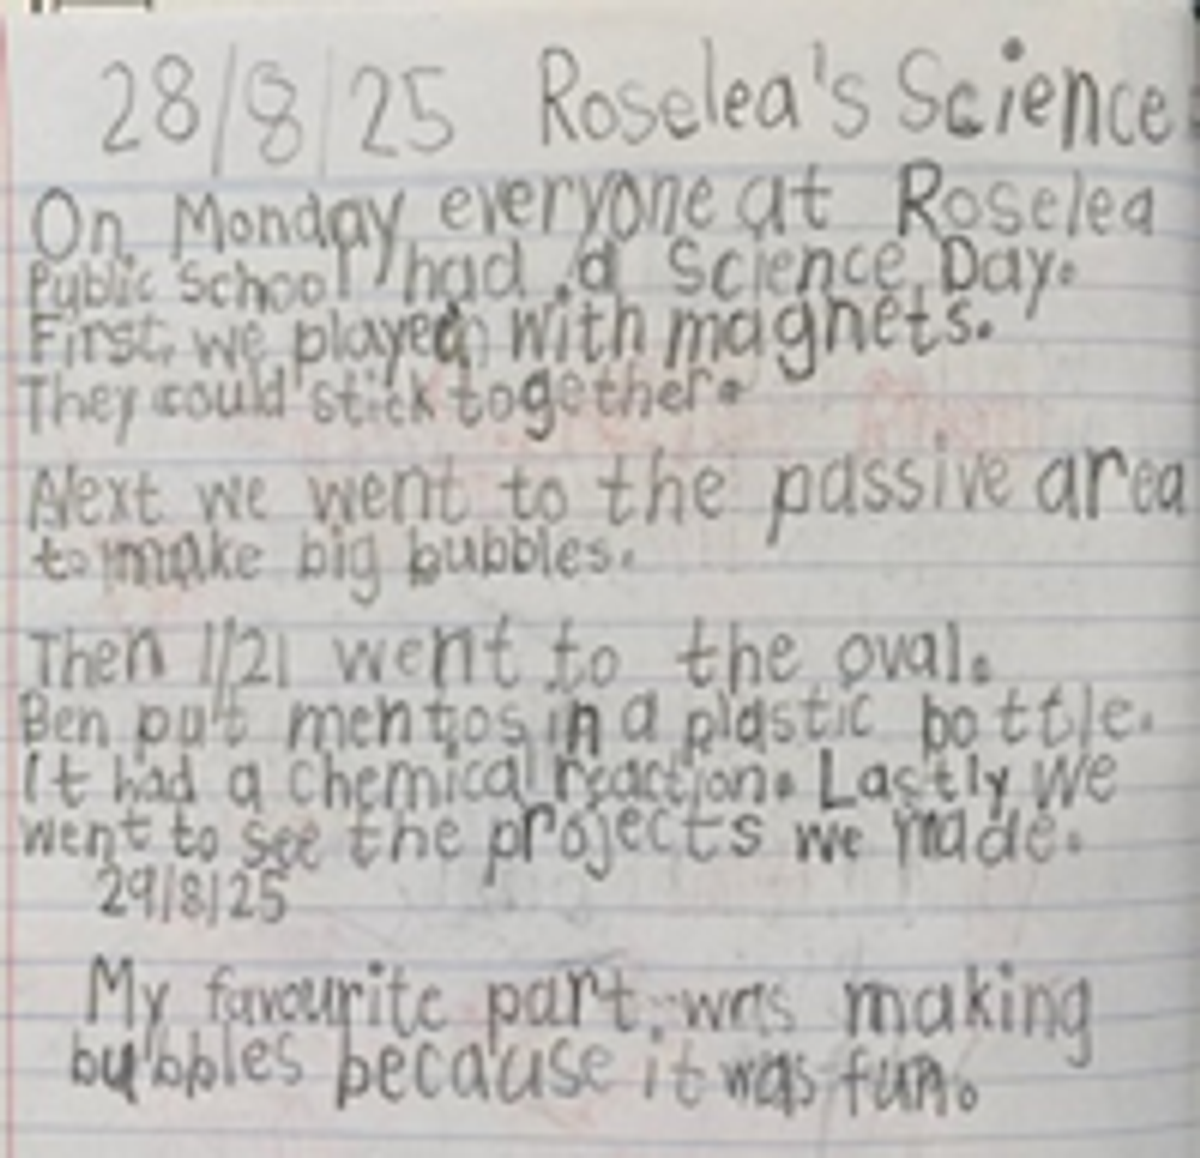 28/8/25 Roselea's Science
On Monday everyone at Roselea
Public School had a Science Day.
First, we played with magnets.
They could stick together.
Next we went to the passive area
to make big bubbles.
Then 1/21 went to the oval.
Ben put mentos in a plastic bottle.
It had a chemical reaction. Lastly we
went to see the projects we made.
29/8/25
My favourite part was making
bubbles because it was fun.